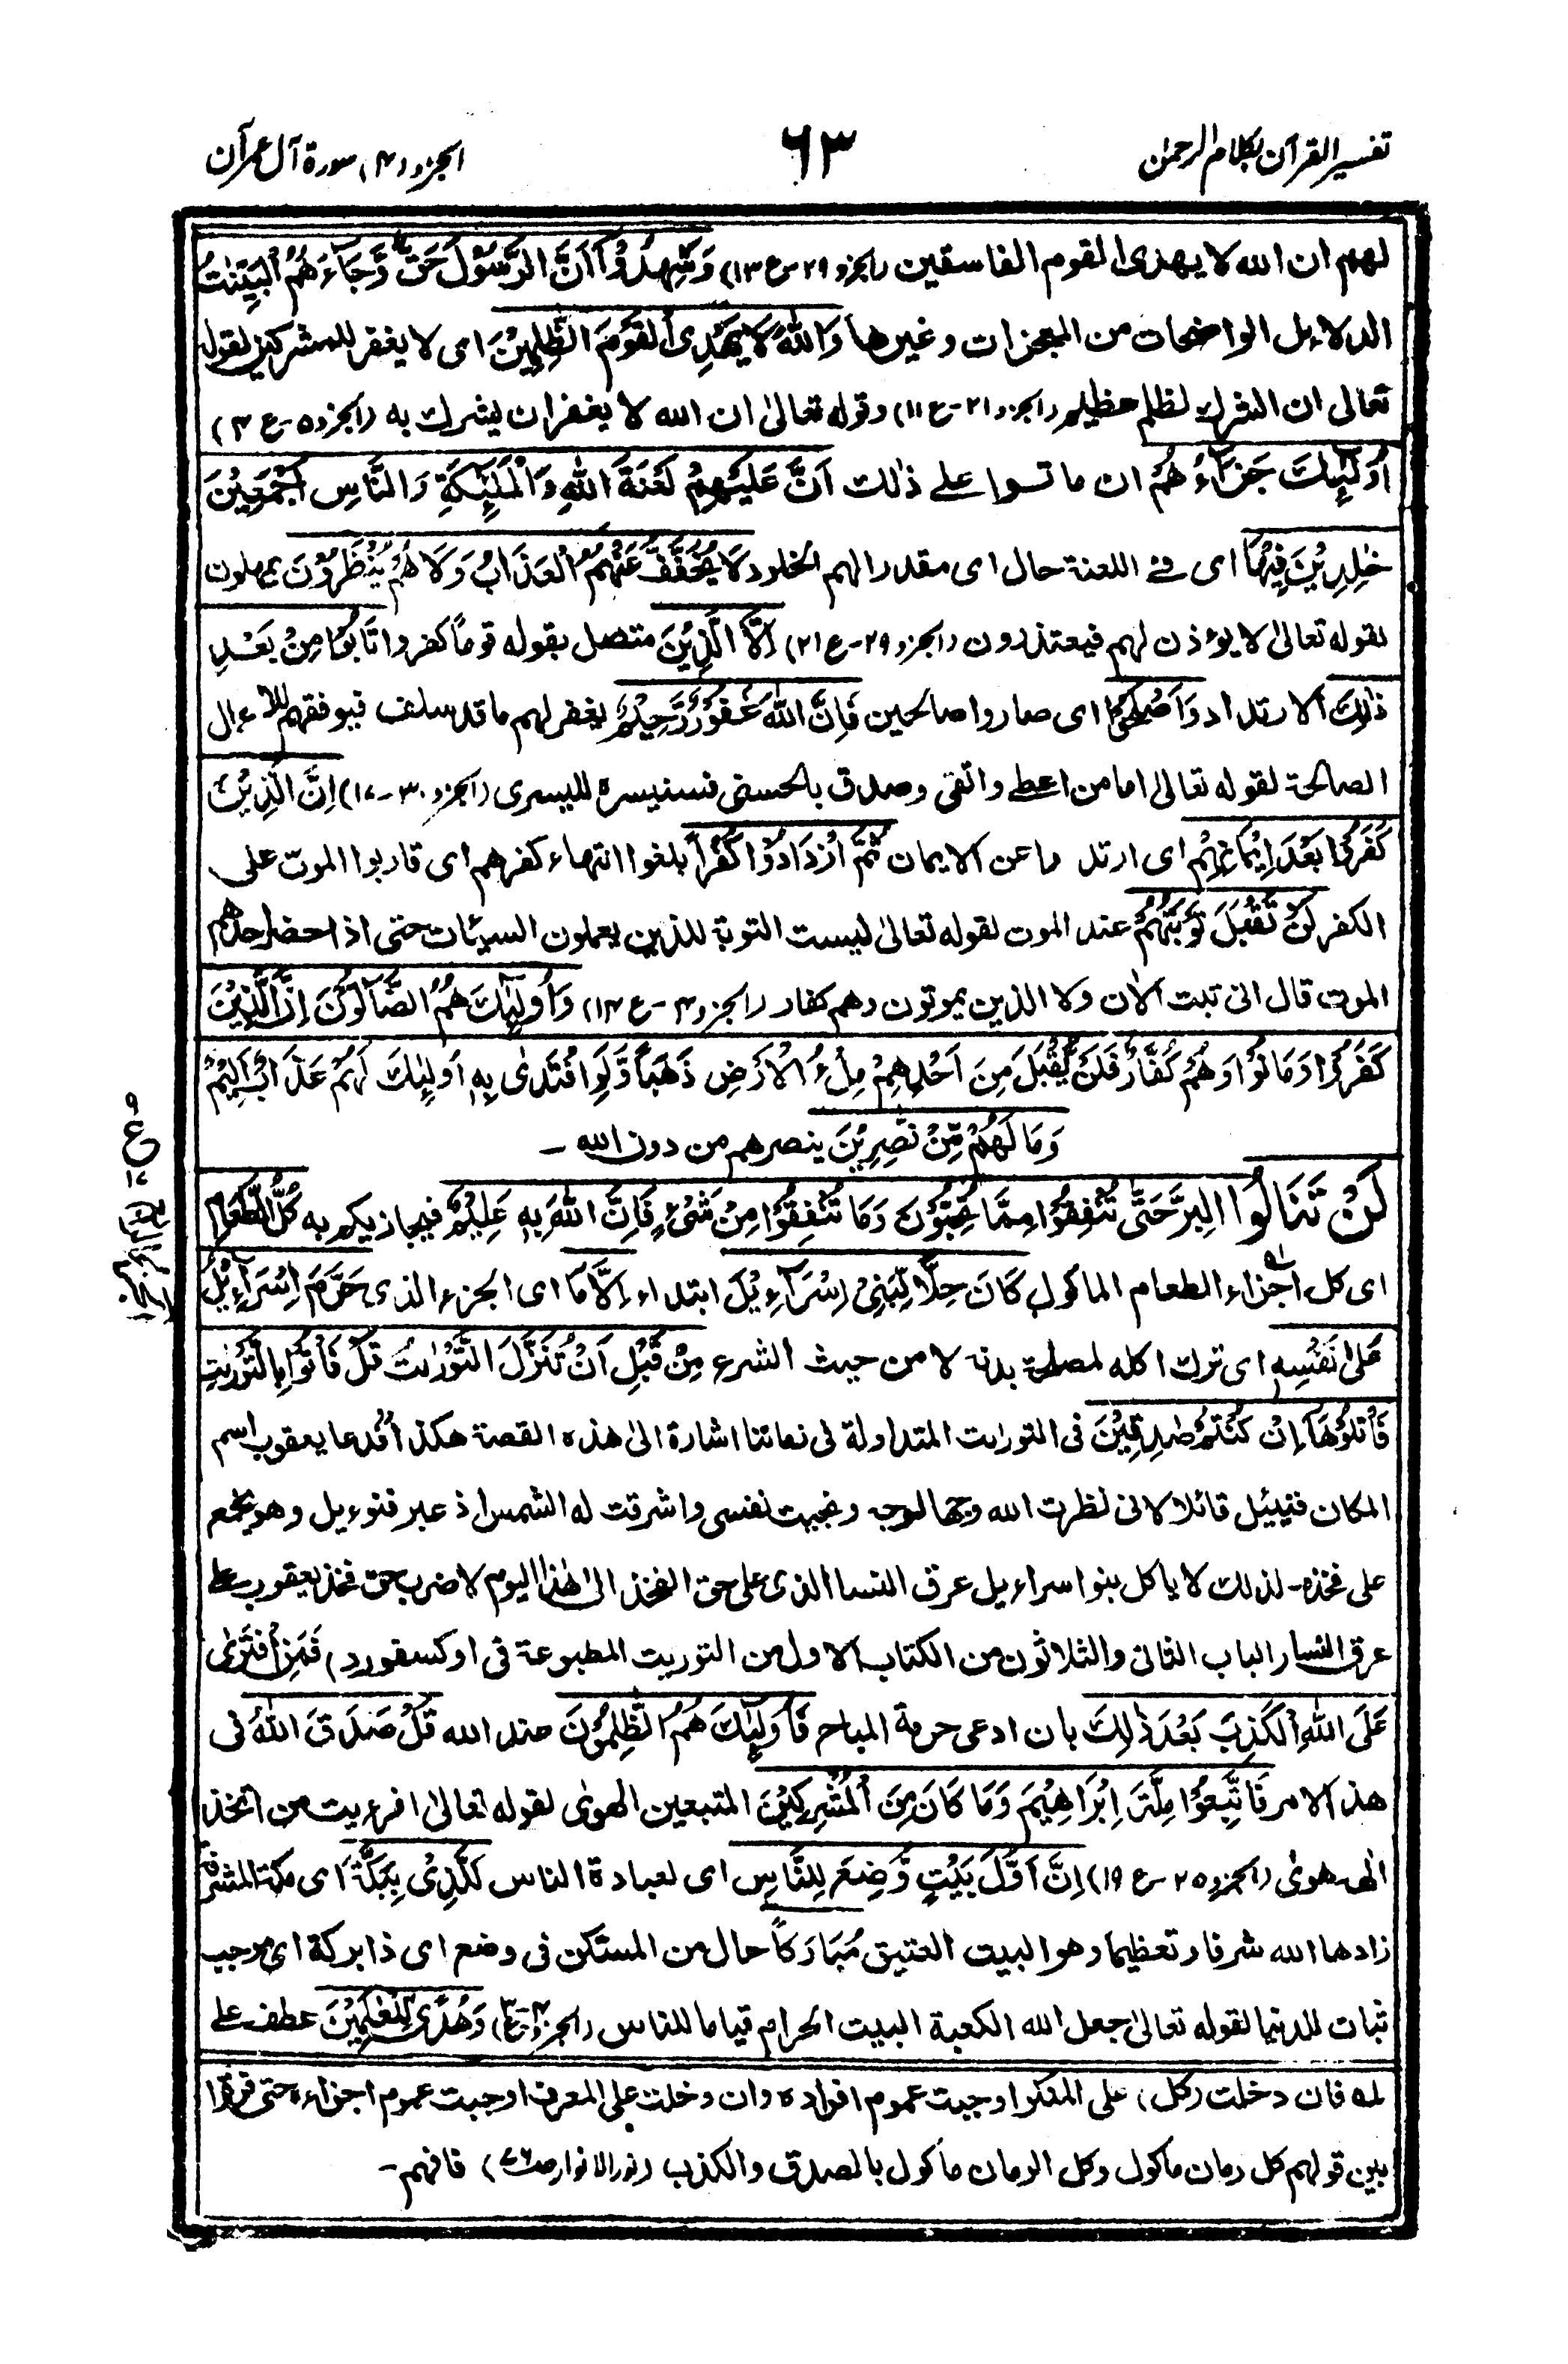 تفسير القرآن بكلام الرحمٰن
٦٣
الجزو (٣) سورة آل عمرآن
لهم ان الله لا يهدى القوم الفاسقين (الجزو ٢٩ - ع ١٣) وَشَهِدُوْٓا اَنَّ الرَّسُوْلَ حَقٌّ وَّجَآءَهُمُ الْبَيِّنٰتُ
الدلاءل الواضحات من المعجزات وغيرها وَاللهُ لَا يَهْدِى الْقَوْمَ الظّٰلِمِيْنَ اى لا يغفر للمشركين لقوله
تعالى ان الشرك لظلم عظيم (الجزو ٢١ - ع ١١) وقوله تعالىٰ ان الله لا يغفر ان يشرك به (الجزو ٥ - ع ٣)
اُولٰٓئِكَ جَزَآءُ هُمْ ان ماتوا على ذٰلك اَنَّ عَلَيْهِمْ لَعْنَةَ اللهِ وَالْمَلٰٓئِكَةِ وَالنَّاسِ اَجْمَعِيْنَ
خٰلِدِيْنَ فِيْهَا اى فى اللعنة حال اى مقدرا لهم الخلود لَا يُخَفَّفُ عَنْهُمُ الْعَذَابُ وَلَا هُمْ يُنْظَرُوْنَ يمهلون
لقوله تعالىٰ لا يوءذن لهم فيعتذرون (الجزو ٢٩ - ع ٢١) اِلَّا الَّذِيْنَ متصل بقوله قومًا كفروا تَابُوْا مِنْۢ بَعْدِ
ذٰلِكَ الارتداد وَاَصْلَحُوْا اى صاروا صالحين فَاِنَّ اللهَ غَفُوْرٌ رَّحِيْمٌ يغفر لهم ما قد سلف فيوفقهم للاعمال
الصالحة لقوله تعالىٰ اما من اعطى واتقى وصدق بالحسنى فسنيسره لليسرى (الجزو ٣٠ - ١٧) اِنَّ الَّذِيْنَ
كَفَرُوْا بَعْدَ اِيْمَانِهِمْ اى ارتدوا عن الايمان ثُمَّ ازْدَادُوْا كُفْرًا بلغوا انتهاء كفرهم اى قاربوا الموت على
الكفر لَنْ تُقْبَلَ تَوْبَتُهُمْ عند الموت لقوله تعالىٰ ليست التوبة للذين يعملون السيئات حتى اذا حضر احدهم
الموت قال انى تبت الاٰن ولا الذين يموتون وهم كفار (الجزو ٣ - ع ١٤) وَاُولٰٓئِكَ هُمُ الضَّآلُّوْنَ اِنَّ الَّذِيْنَ
كَفَرُوْا وَمَاتُوْا وَهُمْ كُفَّارٌ فَلَنْ يُّقْبَلَ مِنْ اَحَدِهِمْ مِلْءُ الْاَرْضِ ذَهَبًا وَّلَوِ افْتَدٰى بِهٖ اُولٰٓئِكَ لَهُمْ عَذَابٌ اَلِيْمٌ
وَمَا لَهُمْ مِّنْ نّٰصِرِيْنَ ينصرهم من دون الله -
ع
لَنْ تَنَالُوا الْبِرَّ حَتّٰى تُنْفِقُوْا مِمَّا تُحِبُّوْنَ وَمَا تُنْفِقُوْا مِنْ شَىْءٍ فَاِنَّ اللهَ بِهٖ عَلِيْمٌ فيجازيكم به كُلُّ الطَّعَامِ
اى كل اجزاء الطعام الماكول كَانَ حِلًّا لِّبَنِىْٓ اِسْرَآءِيْلَ ابتداء اِلَّا مَا اى الجزء الذى حَرَّمَ اِسْرَآءِيْلُ
عَلىٰ نَفْسِهٖ اى ترك اكله لمصلحة بدنه لا من حيث الشرع مِنْ قَبْلِ اَنْ تُنَزَّلَ التَّوْرٰىةُ قُلْ فَأْتُوْا بِالتَّوْرٰىةِ
فَاتْلُوْهَآ اِنْ كُنْتُمْ صٰدِقِيْنَ فى التورات المتداولة فى زماننا اشارة الىٰ هذه القصة هكذا فدعا يعقوب اسم
المكان فنيئيل قائلا لانى نظرت الله وجها لوجه ونجيت نفسى واشرقت له الشمس اذ عبر فنوءيل وهو يخمع
على فخذه - لذلك لا ياكل بنوا سراءيل عرق النسا الذى على حق الفخذ الىٰ هٰذا اليوم لانه ضرب حق فخذ يعقوب على
عرق النسا (الباب الثانى والثلاثون من الكتاب الاول من التوريت المطبوعة فى اوكسفورد) فَمَنِ افْتَرٰى
عَلَى اللهِ الْكَذِبَ بَعْدَ ذٰلِكَ بان ادعى حرمة المباح فَاُولٰٓئِكَ هُمُ الظّٰلِمُوْنَ عند الله قُلْ صَدَقَ اللهُ فى
هذا الامر فَاتَّبِعُوْا مِلَّةَ اِبْرَاهِيْمَ وَمَا كَانَ مِنَ الْمُشْرِكِيْنَ المتبعين الهوىٰ لقوله تعالىٰ افرءيت من اتخذ
الٰهه هوٰى (الجزو ٢٥ - ع ١٩) اِنَّ اَوَّلَ بَيْتٍ وُّضِعَ لِلنَّاسِ اى لعبادة الناس لَلَّذِىْ بِبَكَّةَ اى مكة المشرفة
زادها الله شرفا وتعظيما وهو البيت العتيق مُبَارَكًا حال من المستكن فى وضع اى ذا بركة اى موجب
ثبات للدنيا لقوله تعالىٰ جعل الله الكعبة البيت الحرام قياما للناس (الجزو ٧ - ع ٣) وَهُدًى لِّلْعٰلَمِيْنَ عطف على
له فان دخلت (كل) على المنكر اوجبت عموم افراده وان دخلت على المعرف اوجبت عموم اجزاءه حتى فرقوا
بين قولهم كل رمان ماكول وكل الرمان ماكول بالصدق والكذب (نور الانوار ص ٧٦) فافهم -